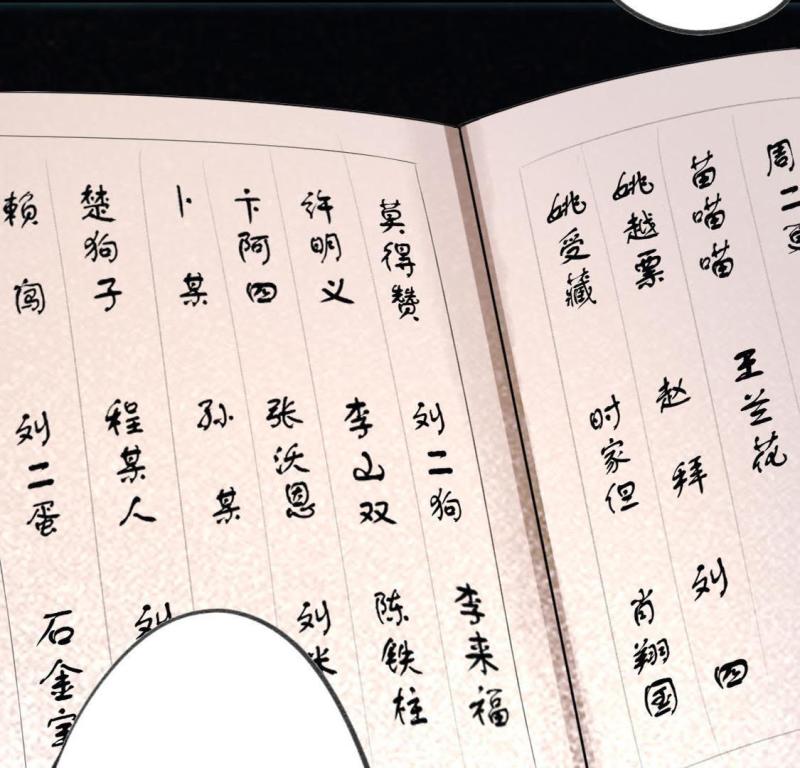 周二
苗喵喵
王兰花
姚越票
赵拜
刘四
姚受藏
时家但
肖翔国
莫得赞
刘二狗
李来福
许明义
李山双
陈铁柱
卞阿四
张沃恩
刘
卜某
孙某
楚狗子
程某人
刘
賴闯
刘二蛋
石金宝